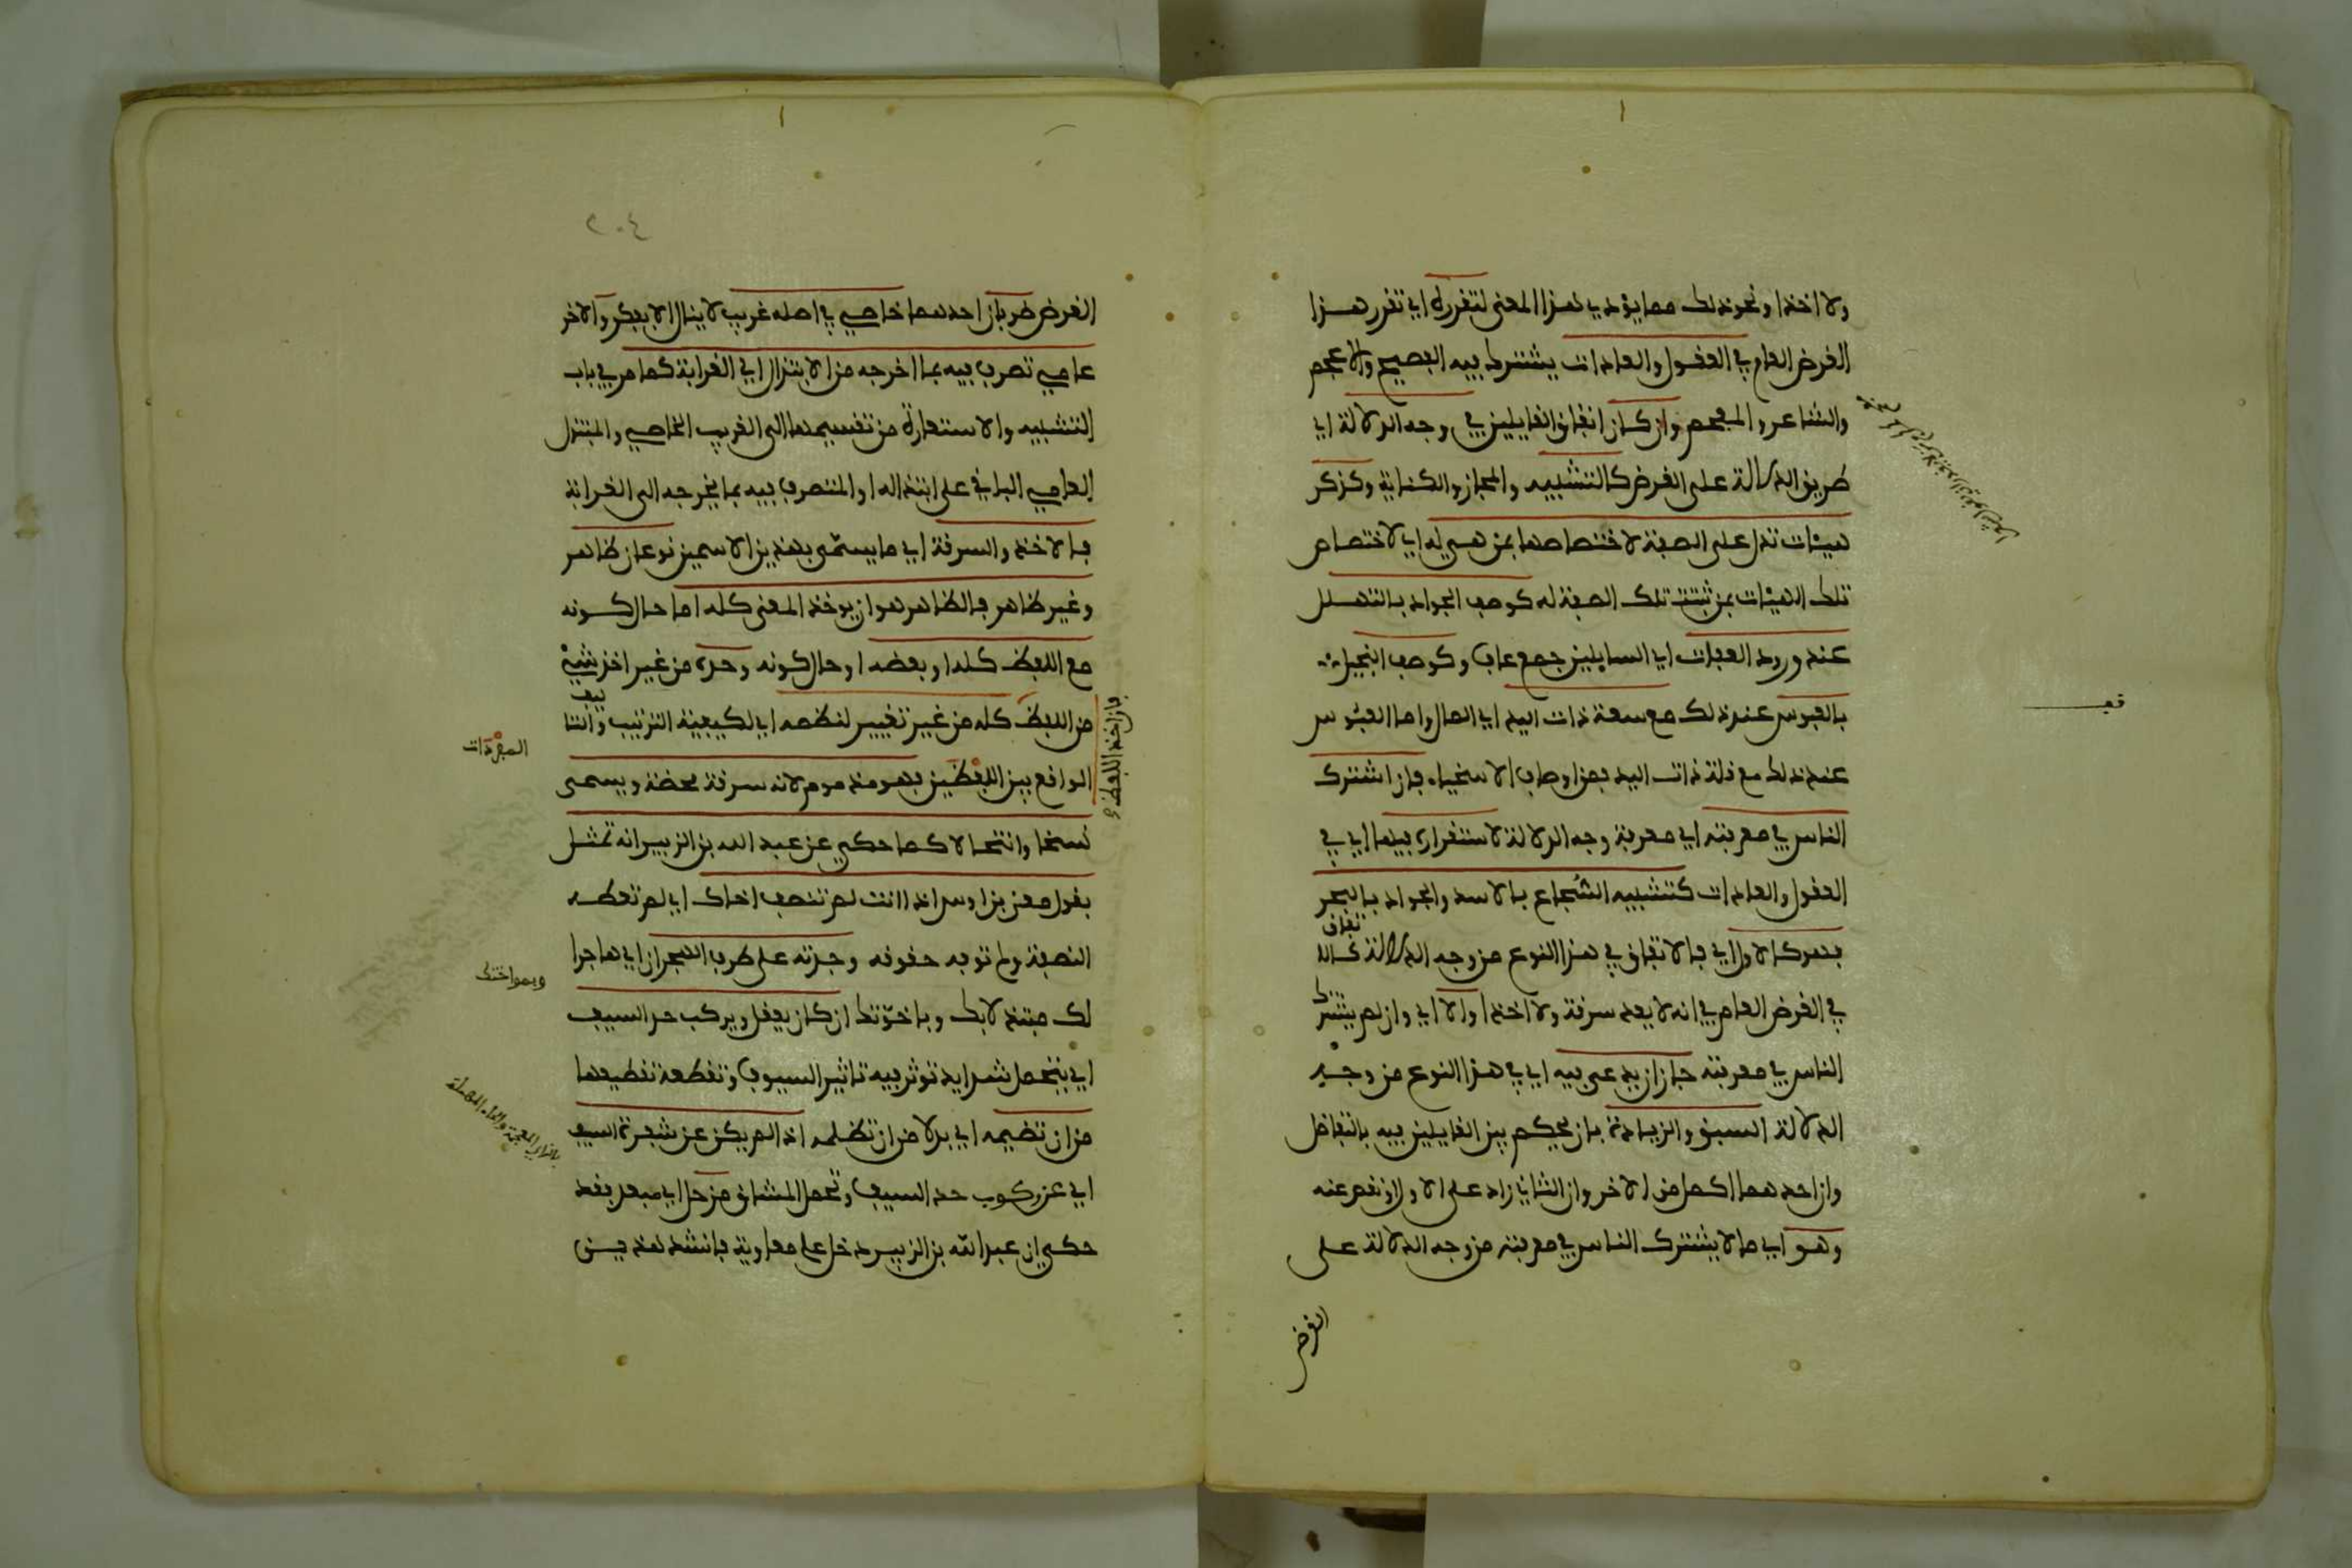 ولا اخذا ونحو ذلك مما يؤدي هذا المعنى لتقرره اي تقرر هذا
الغرض العام في العقول والعادات يشترك فيه الفصيح والاعجم
والشاعر والمفحم وان كان اتفاق القايلين في وجه الدلالة اي
طريق الدلالة على الغرض كالتشبيه والمجاز والكناية وكذكر
هيئات تدل على الصفة لاختصاصها بمن هي له اي لاختصاص
تلك الهيئات بمن ثبتت تلك الصفة له كوصف الجواد بالتهلل
عند ورود العفات اي السايلين جمع عاف وكوصف البخيل
بالعبوس عند ذلك مع سعة ذات اليد اي المال واما العبوس
عند ذلك مع قلة ذات اليد فمن اوصاف الاسخياء فان اشترك
الناس في معرفته اي معرفة وجه الدلالة لاستقراره فيهما اي في
العقول والعادات كتشبيه الشجاع بالاسد والجواد بالبحر
فهو كالاول اي فالاتفاق في هذا النوع من وجه الدلالة كالا
تفاق
في الغرض العام في انه لا يعد سرقة ولا اخذا والا اي وان لم يشترك
الناس في معرفته جاز ان يدعى فيه اي في هذا النوع من وجه
الدلالة السبق والزيادة بان يحكم بين القايلين فيه بالتفاضل
وان احدهما اكمل من الاخر وان الثاني زاد على الاول او نقص عنه
وهو اي ما لا يشترك الناس في معرفته من وجه الدلالة على
الغرض
قف
٢٠٤
الغرض ضربان احدهما خاصي في اصله غريب لا ينال الا بفكر والاخر
عامي تصرف فيه بما اخرجه من الابتذال الي الغرابة كما مر في باب
التشبيه والاستعارة من تقسيمهما الى الغريب الخاصي والمبتذل
العامي الباقي على ابتذاله او المتصرف فيه بما يخرجه الى الغرابة
فالاخذ والسرقة اي ما يسمى بهذين الاسمين نوعان ظاهر
وغير ظاهر فالظاهر هو ان يوخذ المعنى كله اما حال كونه
مع اللفظ كله او بعضه او حال كونه وحده من غير اخذ شيء
من اللفظ كله من غير تغيير لنظمه اي لكيفية الترتيب والتا
ليف
فان اخذ اللفظ
المفردات
الواقع بين اللفظين فهو مذموم لانه سرقة محضة ويسمى
نسخا وانتحالا كما حكي عن عبد الله بن الزبير انه تمثل
بقول معن بن اوس اذا انت لم تنصف اخاك اي لم تعطه
النصفة ولم توفه حقوقه وجدته على طرف الهجران اي هاجرا
لك متبدلا بك وباخوتك ان كان يعقل ويركب حد السيف
وبمواختك
اي يتحمل شدايد توثر فيه تاثير السيوف وتقطعه تقطيعها
من ان تضيمه اي بدلا من ان تظلمه اذا لم يكن عن شفرة السيف
اي عن ركوب حد السيف وتحمل المشاق مزحل اي مبعد فقد
حكي ان عبد الله بن الزبير دخل على معاوية فانشد هذين